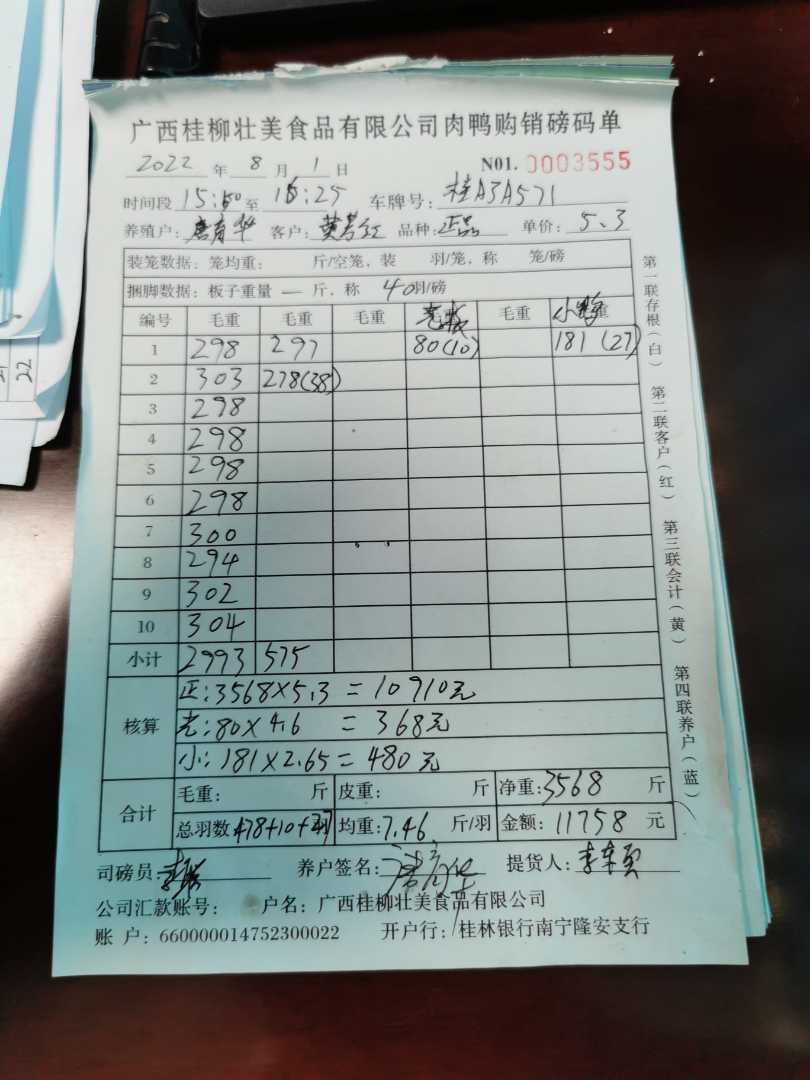 广西桂柳壮美食品有限公司肉鸭购销磅码单
2022 年 8 月 1 日 N01. 0003555
时间段 15:50 至 16:25 车牌号: 桂A3A571
养殖户: 唐育华 客户: 黄芳红 品种: 正品 单价: 5.3
装笼数据: 笼均重: 斤/空笼, 装 羽/笼, 称 笼/磅
捆脚数据: 板子重量 — 斤, 称 40羽/磅
编号 毛重 毛重 毛重 毛重 小鸭
1 298 297 80(10) 181(27)
2 303 278(38)
3 298
4 298
5 298
6 298
7 300
8 294
9 302
10 304
小计 2993 575
核算
正: 3568×5.3 = 10910元
光: 80×4.6 = 368元
小: 181×2.65 = 480元
合计
毛重: 斤 皮重: 斤 净重: 3568 斤
总羽数 478+10+27 均重: 7.46 斤/羽 金额: 11758 元
司磅员: 养户签名: 提货人:
公司汇款账号: 户名: 广西桂柳壮美食品有限公司
账 户: 660000014752300022 开户行: 桂林银行南宁隆安支行
第一联存根(白) 第二联客户(红) 第三联会计(黄) 第四联养户(蓝)
22